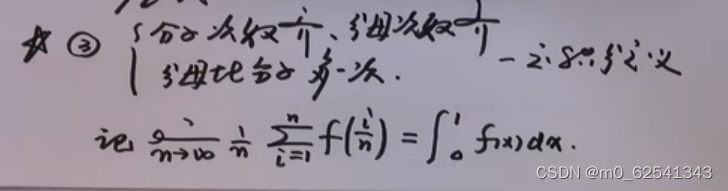 ☆ ③ { 分子次数齐、分母次数齐
分母比分子多一次. — 定积分定义
记 lim n→∞ 1/n ∑ i=1 n f(i/n) = ∫₀¹ f(x)dx.
CSDN @m0_62541343